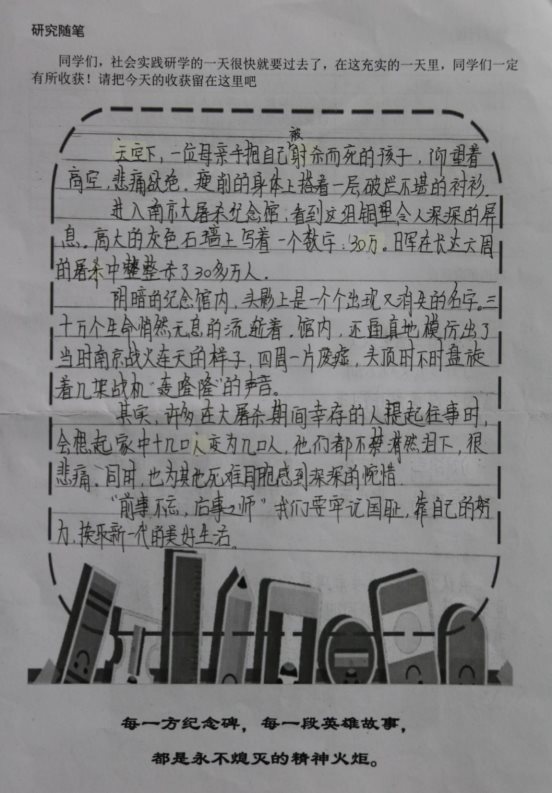 研究随笔
同学们，社会实践研学的一天很快就要过去了，在这充实的一天里，同学们一定
有所收获！请把今天的收获留在这里吧
被
天空下，一位母亲手抱自己射杀而死的孩子，仰望着
高空，悲痛欲绝。瘦削的身体上搭着一层破烂不堪的衬衫。
进入南京大屠杀纪念馆，看到这里令人深深的屏
息。高大的灰色石墙上写着一个数字：30万。日军在长达六周
的屠杀中整整杀了30多万人。
阴暗的纪念馆内，头影上是一个个出现又消失的名字。三
十万个生命悄然无息的流逝着。馆内，还逼真地模仿出了
当时南京战火连天的样子，四周一片废墟，头顶时不时盘旋
着几架战机“轰隆隆”的声音。
其实，许多在大屠杀期间幸存的人提起往事时，
会想起家中十几口人变为几口人，他们都不禁潸然泪下，很
悲痛、同时，也为其他死难同胞感到深深的惋惜。
“前事不忘，后事之师”我们要牢记国耻，靠自己的努
力，换取新一代的美好生活。
每一方纪念碑，每一段英雄故事，
都是永不熄灭的精神火炬。